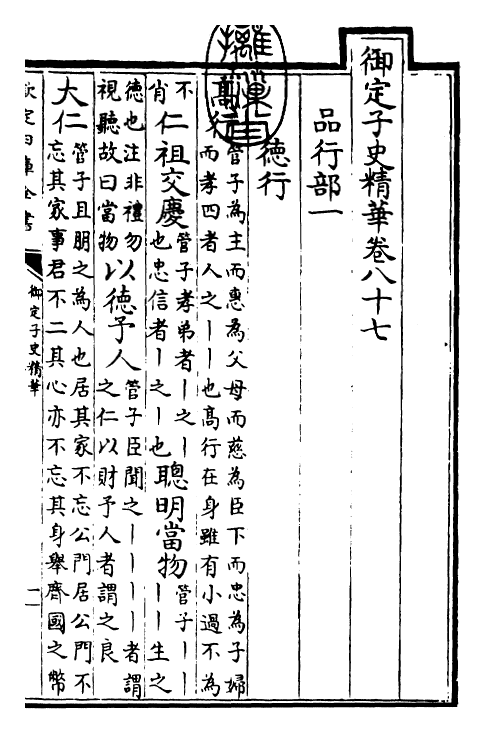 御定子史精華卷八十七
品行部一
德行
高行管子為主而惠為父母而慈為臣下而忠為子婦
而孝四者人之丨丨也高行在身雖有小過不為
不肖仁祖交慶管子孝弟者丨之丨也忠信者丨之丨也聰明當物管子丨丨丨丨生之
德也注非禮勿視聽故曰當物以德予人管子臣聞之丨丨丨丨者謂之仁以財予人者謂之良
大仁管子且朋之為人也居其家不忘公門居公門不
忘其家事君不二其心亦不忘其身舉齊國之幣
欽定四庫全書
御定子史精華
一